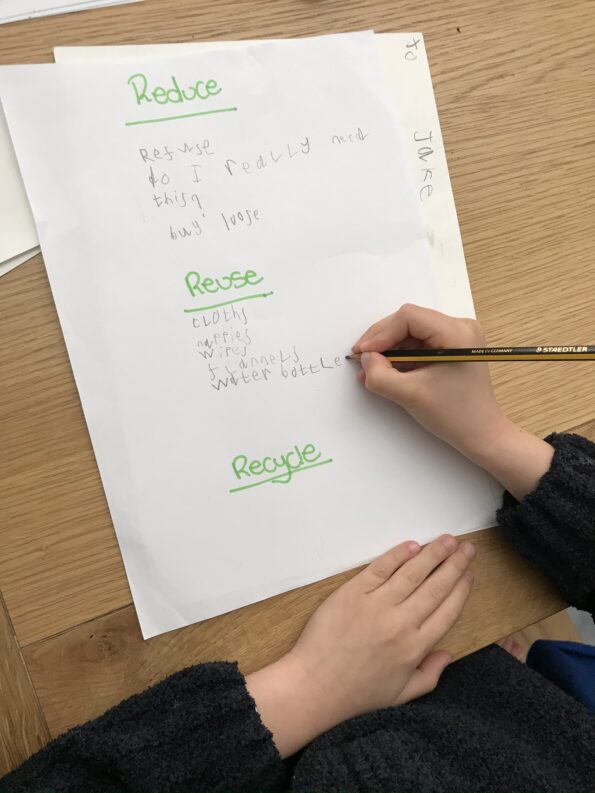 Reduce
Refuse
do I really need
this?
buy loose
Reuse
cloths
nappies
wires
flannels
water bottle
Recycle
to Jake
MADE IN GERMANY STAEDTLER